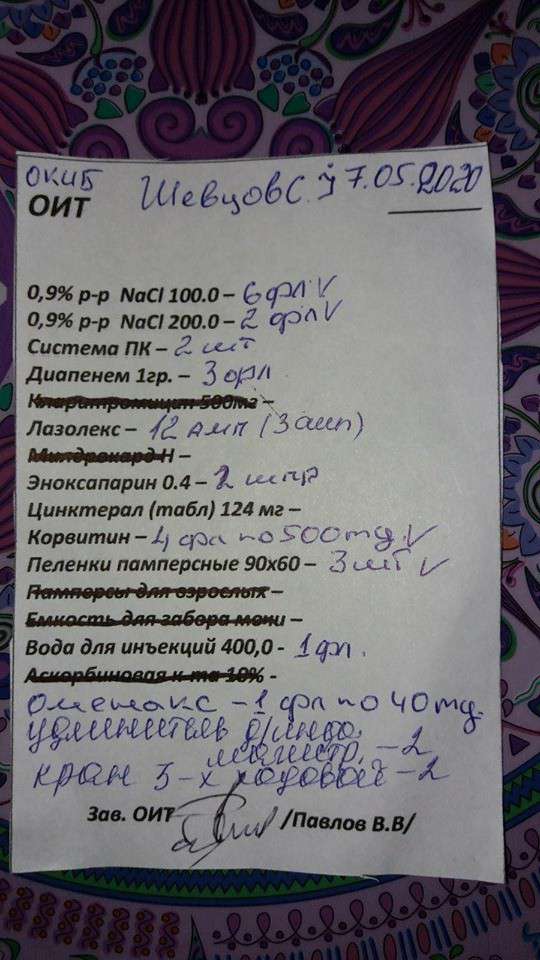 ОКИБ
ОИТ Шевцов С. 7.05.2020
0,9% р-р NaCl 100.0 – 6 фл V
0,9% р-р NaCl 200.0 – 2 фл V
Система ПК – 2 шт
Диапенем 1гр. – 3 фл
Кларитромицин 500мг –
Лазолекс – 12 амп (3 амп)
Милдрокард Н –
Эноксапарин 0.4 – 2 шпр
Цинктерал (табл) 124 мг –
Корвитин – 4 фл по 500 mg. V
Пеленки памперсные 90х60 – 3 шт V
Памперсы для взрослых –
Емкость для забора мочи –
Вода для инъекций 400,0 - 1 фл.
Аскорбиновая к-та 10% -
Ометакс – 1 фл по 40 mg.
удлинитель д/инфо
магистр. – 2
кран 3-х ходовой – 2
Зав. ОИТ /Павлов В.В/